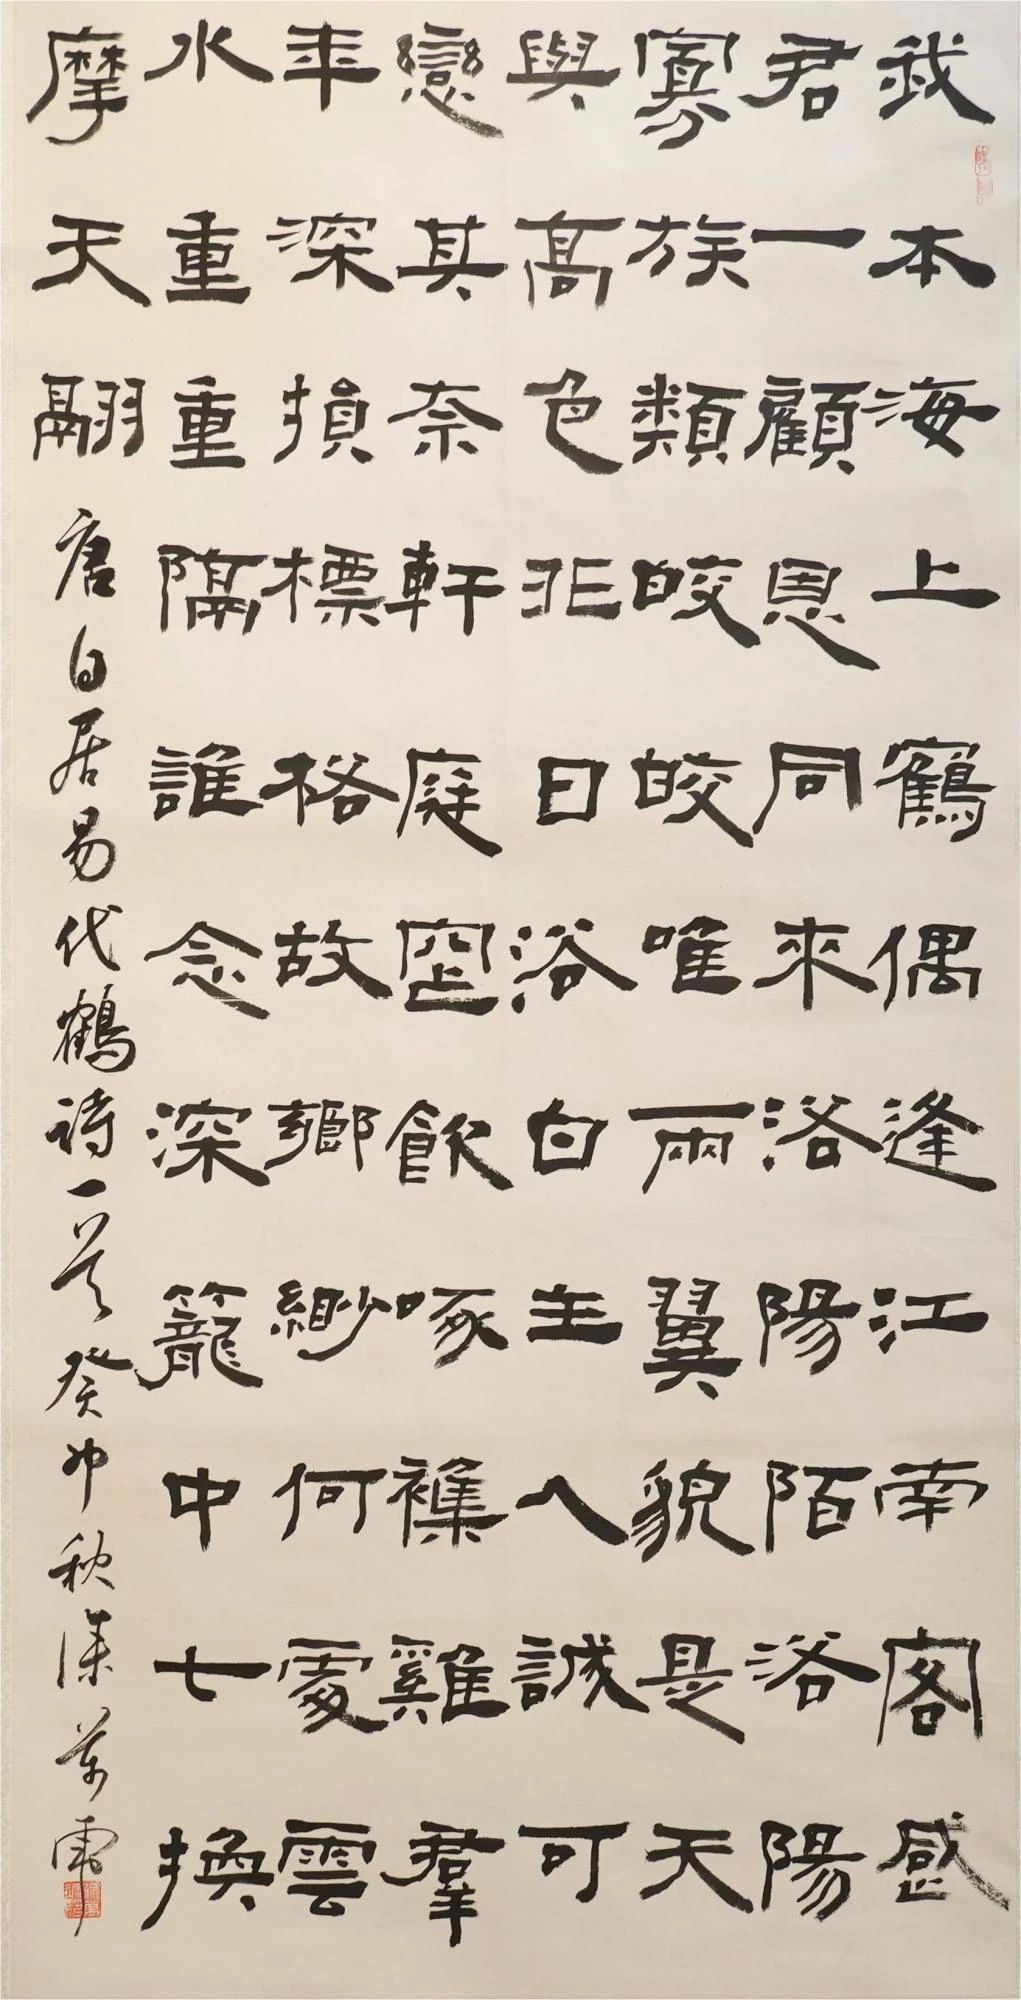 我本海上鶴偶逢江南客感
君一顧恩同來洛陽陌洛陽
寡族類皎皎唯兩翼貌是天
與高色非日浴白主人誠可
戀其奈軒庭窄飲啄雜雞羣
年深損標格故鄉緲何處雲
水重重隔誰念深籠中七換
摩天翮
唐白居易代鶴詩一首癸卯秋